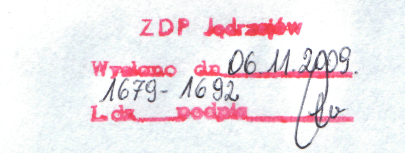 ZDP Jędrzejów
Wysłano dn 06 11.2009.
1679-1692
L.dz podpis